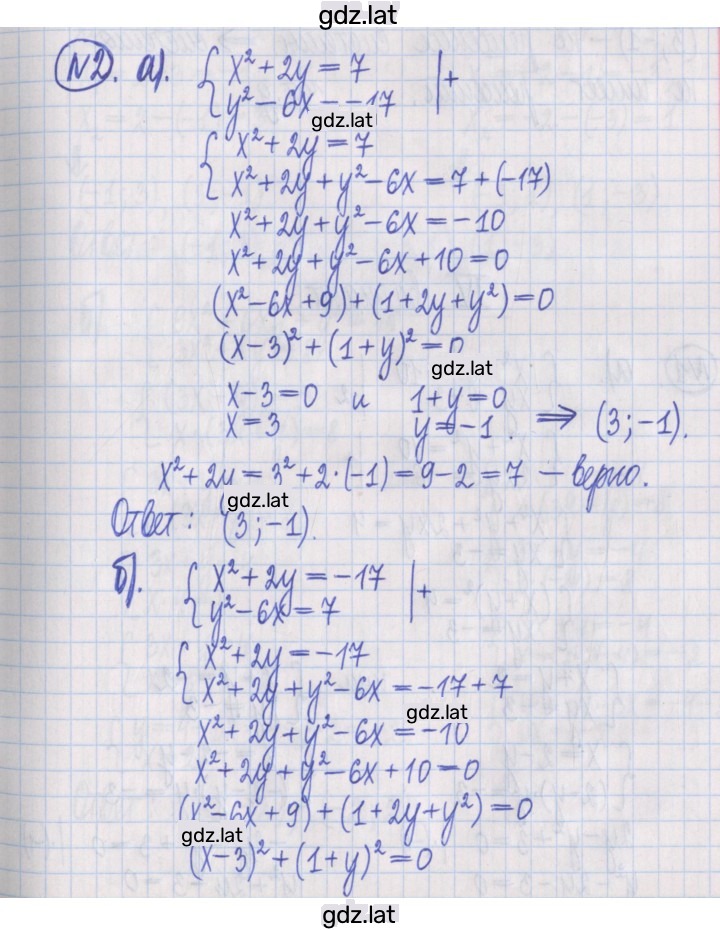 gdz.lat
№2. а). { x² + 2y = 7 | +
y² − 6x = −17
gdz.lat
{ x² + 2y = 7
x² + 2y + y² − 6x = 7 + (−17)
x² + 2y + y² − 6x = −10
x² + 2y + y² − 6x + 10 = 0
(x² − 6x + 9) + (1 + 2y + y²) = 0
(x − 3)² + (1 + y)² = 0
gdz.lat
x − 3 = 0 и 1 + y = 0
x = 3 y = −1. ⇒ (3; −1).
x² + 2y = 3² + 2·(−1) = 9 − 2 = 7 — верно.
gdz.lat
Ответ: (3; −1).
б). { x² + 2y = −17 | +
y² − 6x = 7
{ x² + 2y = −17
x² + 2y + y² − 6x = −17 + 7
gdz.lat
x² + 2y + y² − 6x = −10
x² + 2y + y² − 6x + 10 = 0
(x² − 6x + 9) + (1 + 2y + y²) = 0
gdz.lat
(x − 3)² + (1 + y)² = 0
gdz.lat